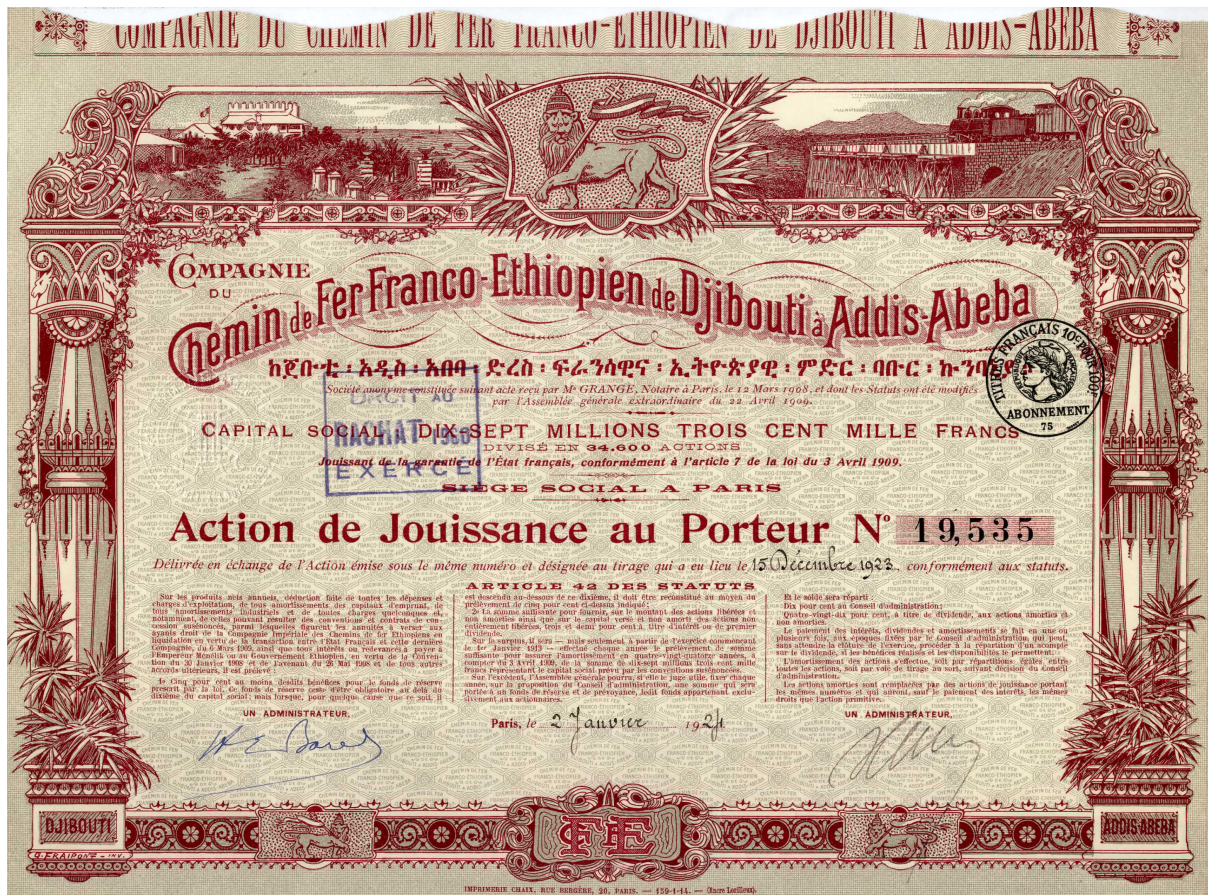 COMPAGNIE DU CHEMIN DE FER FRANCO-ETHIOPIEN DE DJIBOUTI A ADDIS-ABEBA
COMPAGNIE
DU
Chemin de Fer Franco-Ethiopien de Djibouti à Addis-Abeba
ከጅቡቲ ፡ አዲስ ፡ አበባ ፡ ድረስ ፡ ፍራንሳዊና ፡ ኢትዮጵያዊ ፡ ምድር ፡ ባቡር ፡
Société anonyme constituée suivant acte reçu par Me GRANGÉ, Notaire à Paris, le 12 Mars 1908, et dont les Statuts ont été modifiés
par l'Assemblée générale extraordinaire du 22 Avril 1909.
TITRES FRANÇAIS 10c POUR 100F
ABONNEMENT
75
DROIT AU
RACHAT 1960
EXERCÉ
CAPITAL SOCIAL DIX-SEPT MILLIONS TROIS CENT MILLE FRANCS
DIVISÉ EN 34.600 ACTIONS
Jouissant de la garantie de l'État français, conformément à l'article 7 de la loi du 3 Avril 1909.
SIÈGE SOCIAL A PARIS
Action de Jouissance au Porteur No 19,535
Délivrée en échange de l'Action émise sous le même numéro et désignée au tirage qui a eu lieu le 15 Décembre 1923, conformément aux statuts.
ARTICLE 42 DES STATUTS
Sur les produits nets annuels, déduction faite de toutes les dépenses et
charges d'exploitation, de tous amortissements des capitaux d'emprunt, de
tous amortissements industriels et de toutes charges quelconques et,
notamment, de celles pouvant résulter des conventions et contrats de con-
cession susénoncés, parmi lesquelles figurent les annuités à verser aux
ayants droit de la Compagnie Impériale des Chemins de fer Ethiopiens en
liquidation en vertu de la transaction entre l'Etat Français et cette dernière
Compagnie, du 6 Mars 1909, ainsi que tous intérêts ou redevances à payer à
l'Empereur Ménélik ou au Gouvernement Ethiopien, en vertu de la Conven-
tion du 30 Janvier 1908 et de l'avenant du 26 Mai 1908 et de tous autres
accords ultérieurs, il est prélevé :
1o Cinq pour cent au moins desdits bénéfices pour le fonds de réserve
prescrit par la loi. Ce fonds de réserve cesse d'être obligatoire au delà du
dixième du capital social; mais lorsque, par quelque cause que ce soit, il
est descendu au-dessous de ce dixième, il doit être reconstitué au moyen du
prélèvement de cinq pour cent ci-dessus indiqué;
2o La somme suffisante pour fournir, sur le montant des actions libérées et
non amorties ainsi que sur le capital versé et non amorti des actions non
entièrement libérées, trois et demi pour cent à titre d'intérêt ou de premier
dividende.
Par le surplus, il sera — mais seulement à partir de l'exercice commençant
le 1er Janvier 1913 — effectué chaque année le prélèvement de somme
suffisante pour assurer l'amortissement en quatre-vingt-quatorze années, à
compter du 3 Avril 1909, de la somme de dix-sept millions trois cent mille
francs représentant le capital social prévu par les conventions susénoncées.
Sur l'excédent, l'Assemblée générale pourra, si elle le juge utile, fixer chaque
année, sur la proposition du Conseil d'administration, une somme qui sera
portée à un fonds de réserve et de prévoyance, ledit fonds appartenant exclu-
sivement aux actionnaires.
Et le solde sera réparti :
Dix pour cent au Conseil d'administration;
Quatre-vingt-dix pour cent, à titre de dividende, aux actions amorties et
non amorties.
Le paiement des intérêts, dividendes et amortissements se fait en une ou
plusieurs fois, aux époques fixées par le Conseil d'administration qui peut,
sans attendre la clôture de l'exercice, procéder à la répartition d'un acompte
sur le dividende, si les bénéfices réalisés et les disponibilités le permettent.
L'amortissement des actions s'effectue, soit par répartitions égales, entre
toutes les actions, soit par voie de tirage au sort, suivant décision du Conseil
d'administration.
Les actions amorties sont remplacées par des actions de jouissance portant
les mêmes numéros et qui auront, sauf le paiement des intérêts, les mêmes
droits que l'action primitive.
UN ADMINISTRATEUR,
Paris, le 2 Janvier 1924
UN ADMINISTRATEUR,
DJIBOUTI
FE
ADDIS-ABEBA
IMPRIMERIE CHAIX, RUE BERGÈRE, 20, PARIS. — 159-1-14. — (Encre Lorilleux).